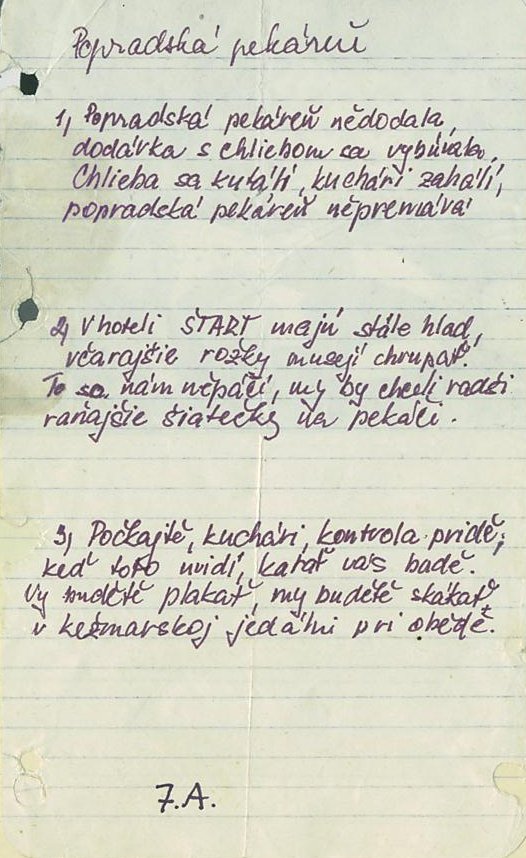 Popradská pekáreň
1, Popradská pekáreň nědodala,
dodávka s chliebom sa vybúrala,
Chlieba sa kutálí, kuchári zahálí,
popradská pekáreň něpremáva
2, V hoteli ŠTART majú stále hlad,
včarajšie rožky musejí chrupať.
To sa nám něpáčí, my by chceli radši
raňajšie šiatečky na pekáči.
3, Počkajtě, kuchári, kontrola pridě,
keď toto uvidí, karať vás budě.
Vy budětě plakať, my budětě skákať
v kežmarskoj jedálni pri obědě.
7.A.